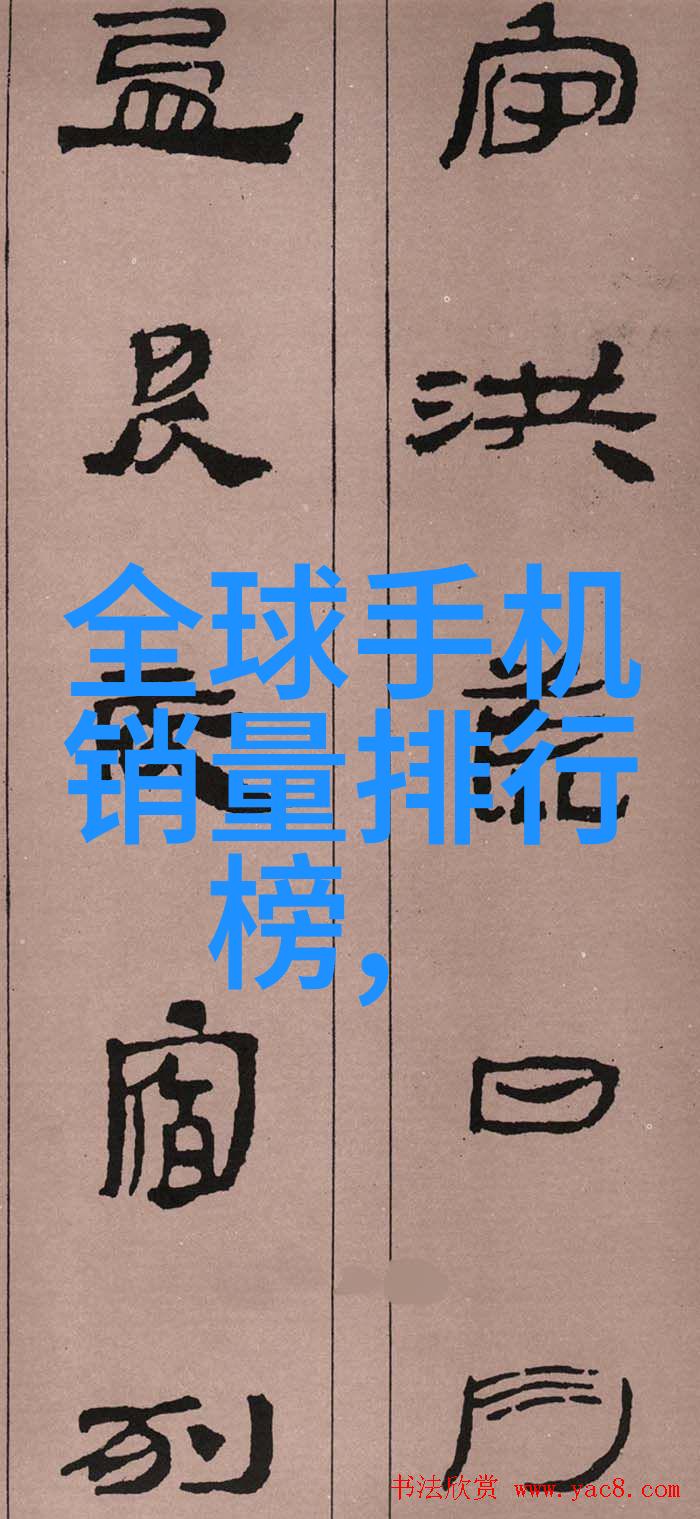 宙洪荒日月
盈昃辰宿列
全球手机
销量排行
榜,
书法欣赏 www.yac8.com